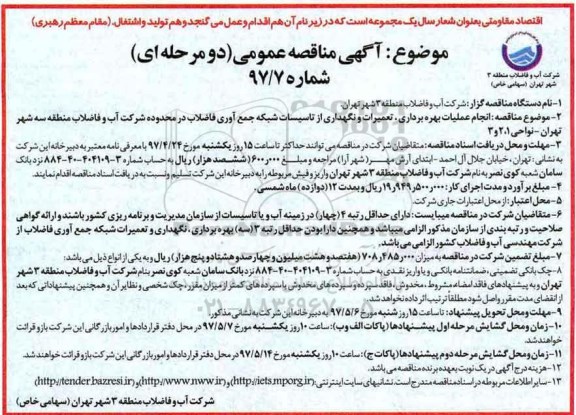 اقتصاد مقاومتی بعنوان شعار سال یک مجموعه است که در زیر نام آن هم اقدام و عمل می گنجد و هم تولید و اشتغال. (مقام معظم رهبری)
موضوع: آگهی مناقصه عمومی (دو مرحله ای)
شماره ۹۷/۷
شرکت آب و فاضلاب منطقه ۳
شهر تهران (سهامی خاص)
۱- نام دستگاه مناقصه گزار: شرکت آب و فاضلاب منطقه ۳ شهر تهران
۲- موضوع مناقصه: انجام عملیات بهره برداری، تعمیرات و نگهداری از تاسیسات شبکه جمع آوری فاضلاب در محدوده شرکت آب و فاضلاب منطقه سه شهر
تهران - نواحی ۱، ۲ و ۳
۳- مهلت و محل دریافت اسناد مناقصه: متقاضیان شرکت در مناقصه می توانند حداکثر تا ساعت ۱۵ روز یکشنبه مورخ ۹۷/۴/۲۴ با معرفی نامه معتبر به دبیرخانه این شرکت
به نشانی: تهران، خیابان جلال آل احمد - ابتدای آرش مهر (شهر آرا) مراجعه و مبلغ ۶۰۰٫۰۰۰ (ششصد هزار) ریال به حساب شماره ۳-۴۰۴۱۰۹-۴۰-۸۸۴ نزد بانک
سامان شعبه کوی نصر به نام شرکت آب و فاضلاب منطقه ۳ شهر تهران واریز و فیش مربوطه را به دبیرخانه این شرکت تسلیم و نسبت به دریافت اسناد مناقصه اقدام نمایند.
۴- مبلغ برآورد و مدت اجرای کار: ۱۹٫۹۴۹٫۵۰۰٫۰۰۰ ریال و بمدت ۱۲ (دوازده) ماه شمسی.
۵- محل اعتبار: از محل اعتبارات جاری شرکت.
۶- متقاضیان شرکت در مناقصه میبایست: دارای حداقل رتبه ۴ (چهار) در زمینه آب و یا تاسیسات از سازمان مدیریت و برنامه ریزی کشور باشند و ارائه گواهی
صلاحیت و رتبه بندی از سازمان مذکور الزامی میباشد و همچنین دارا بودن حداقل رتبه ۳ (سه) بهره برداری، نگهداری و تعمیرات شبکه جمع آوری فاضلاب از
شرکت مهندسی آب و فاضلاب کشور الزامی می باشد.
۷- مبلغ تضمین شرکت در مناقصه به میزان ۷۰۸٫۴۸۵٫۰۰۰ (هفتصد و هشت میلیون و چهارصد و هشتاد و پنج هزار) ریال و به یکی از انواع ذیل می باشد:
۸- چک بانکی تضمینی، ضمانتنامه بانکی و یا واریز نقدی به حساب شماره ۳-۴۰۴۱۰۹-۴۰-۸۸۴ نزد بانک سامان شعبه کوی نصر بنام شرکت آب و فاضلاب منطقه ۳ شهر
تهران و به پیشنهادهای فاقد امضاء، مشروط، مخدوش، فاقد سپرده و سپرده های مخدوش یا سپرده های کمتر از میزان مقرر، چک شخصی و نظایر آن و همچنین پیشنهاداتی که بعد
از انقضای مدت مقرر واصل شود مطلقا ترتیب اثر داده نخواهد شد.
۹- مهلت و محل تحویل پیشنهاد: تا ساعت ۱۵ روز شنبه مورخ ۹۷/۵/۶ به دبیرخانه این شرکت به نشانی مذکور.
۱۰- زمان و محل گشایش مرحله اول پیشنهادها (پاکات الف و ب): ساعت ۱۰ روز یکشنبه مورخ ۹۷/۵/۷ در محل دفتر قراردادها و امور بازرگانی این شرکت باز و قرائت
خواهند شد.
۱۱- زمان و محل گشایش مرحله دوم پیشنهادها (پاکات ج): ساعت ۱۰ روز یکشنبه مورخ ۹۷/۵/۱۴ در محل دفتر قراردادها و امور بازرگانی این شرکت باز و قرائت خواهند شد.
۱۲- هزینه درج آگهی در یک نوبت به عهده برنده مناقصه می باشد.
۱۳- سایر اطلاعات مربوطه در اسناد مناقصه مندرج است. نشانیهای سایت اینترنتی: (http://iets.mporg.ir) و (http://www.nww.ir) و (http://tender.bazresi.ir)
شرکت آب و فاضلاب منطقه ۳ شهر تهران (سهامی خاص)